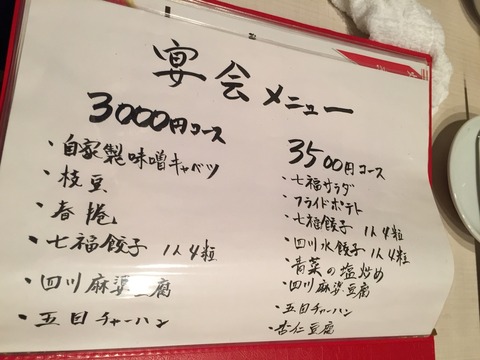 宴会メニュー
3000円コース
・自家製味噌キャベツ
・枝豆
・春捲
・七福餃子 1人4粒
・四川麻婆豆腐
・五目チャーハン
3500円コース
・七福サラダ
・フライドポテト
・七福餃子 1人4粒
・四川水餃子 1人4粒
・青菜の塩炒め
・四川麻婆豆腐
・五目チャーハン
・杏仁豆腐